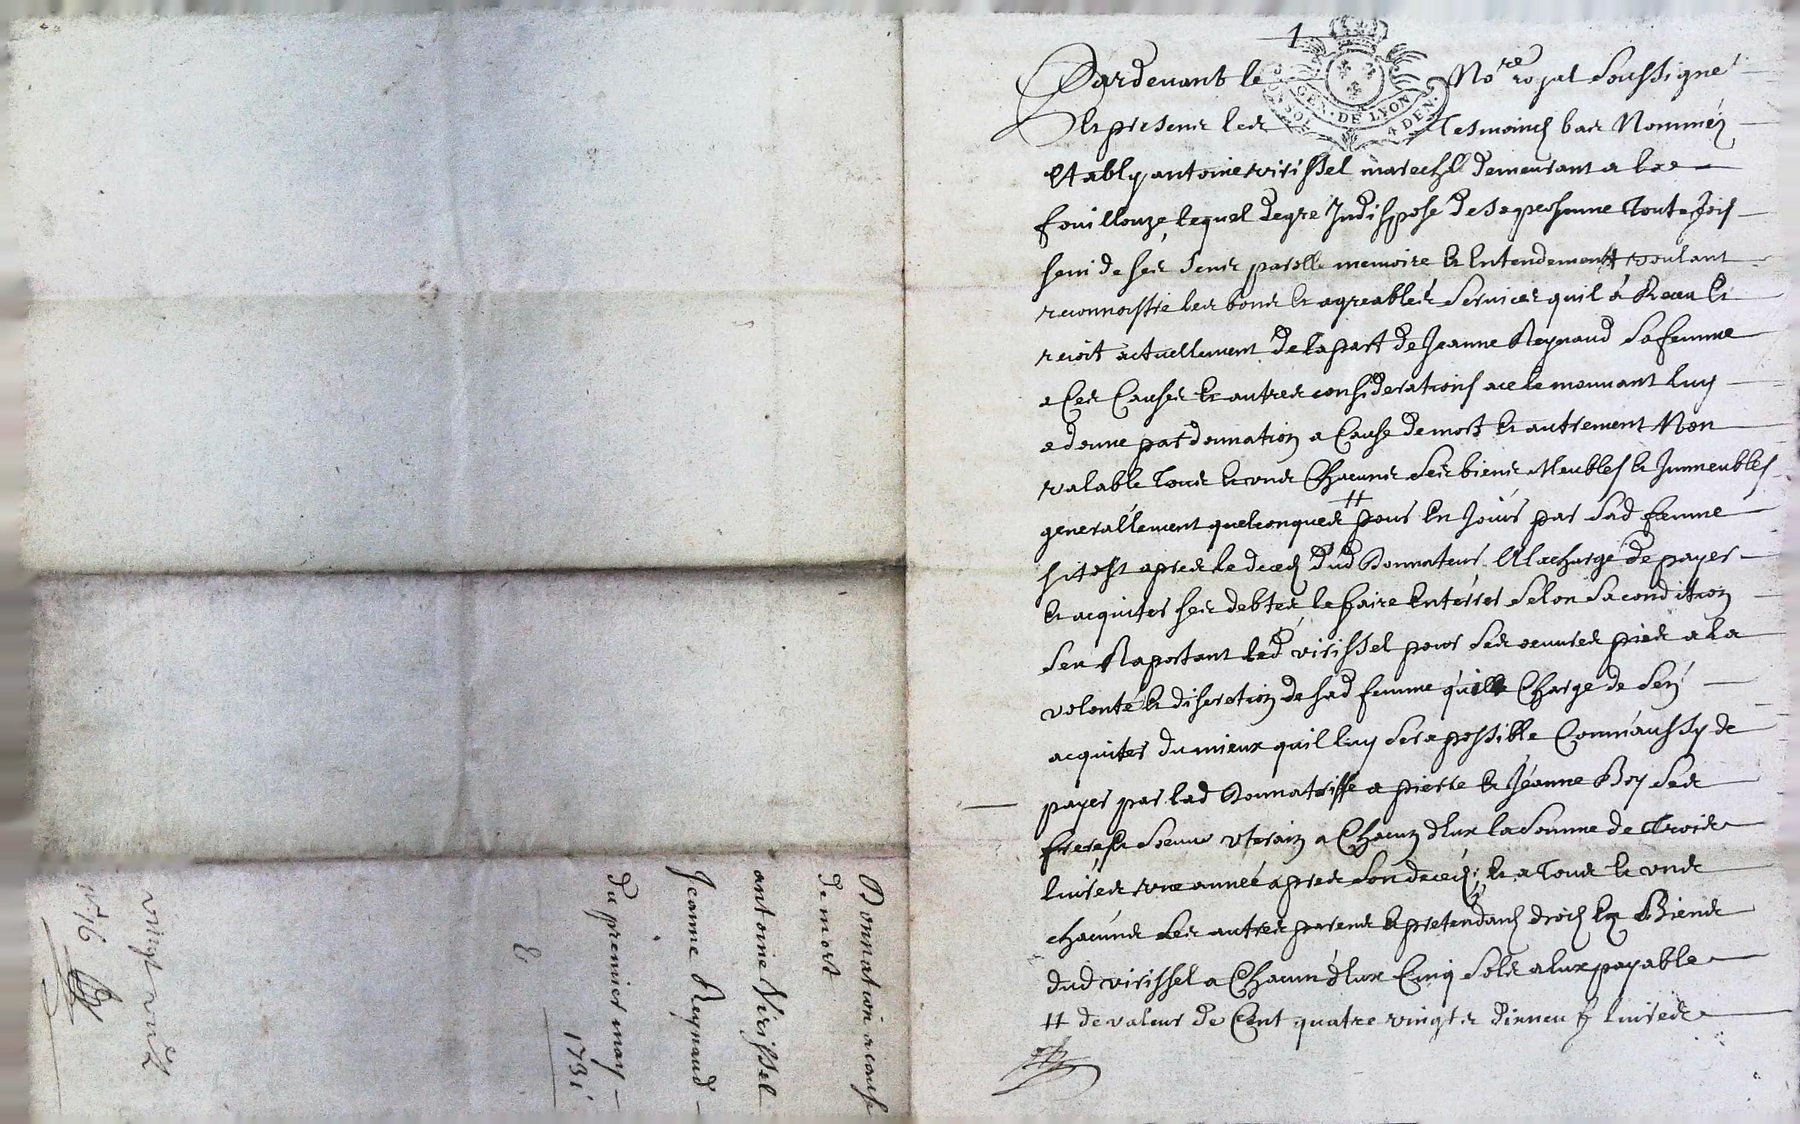 1
Pardevant le No.re royal soussigné
Et presens les tesmoins bas Nommés
Estably antoine virissel marechl demeurant a la
fouillouze, lequel de gre Indispose de sa personne toutefois
seni de ses sens parolle memoire et Entendement voulant
reconnoistre les bons et agreables services quil a Receu et
recoit actuellement de la part de Jeanne Reynaud sa femme
a Ces Causes et autres considerations a ce le mouvant luy
a donne par donnation a Cause de mort et autrement Non
valable tous et uns Chacuns ses biens Meubles et Immeubles
generallement quelconques # pour En Jouir par sad femme
sitost apres le deces dud Donnateur A la charge de payer
et acquiter ses debtes le faire Enterrer selon sa condition
sen Raportant led virissel pour ses oeuvres pies a la
volonté et discretion de sad femme quille Charge de sen
acquiter du mieux quil luy sera possible Comm'aussy de
payer par lad Donnatrisse a pierre et Jeanne Boy ses
frere et soeur uterain a Chacun d'Eux la somme de trois
livres une année apres son deces; et a tous et uns
chacuns ses autres parens et pretendans drois En Biens
dud virissel a Chacun d'Eux Cinq sols a Eux payable
# de valeur de Cent quatre vingts dixneuf livres
GEN. DE LYON
4 DEN.
Donnation a cause
de mort
antoine Virissel
Jeanne Reynaud
du premier may
1731
vingt